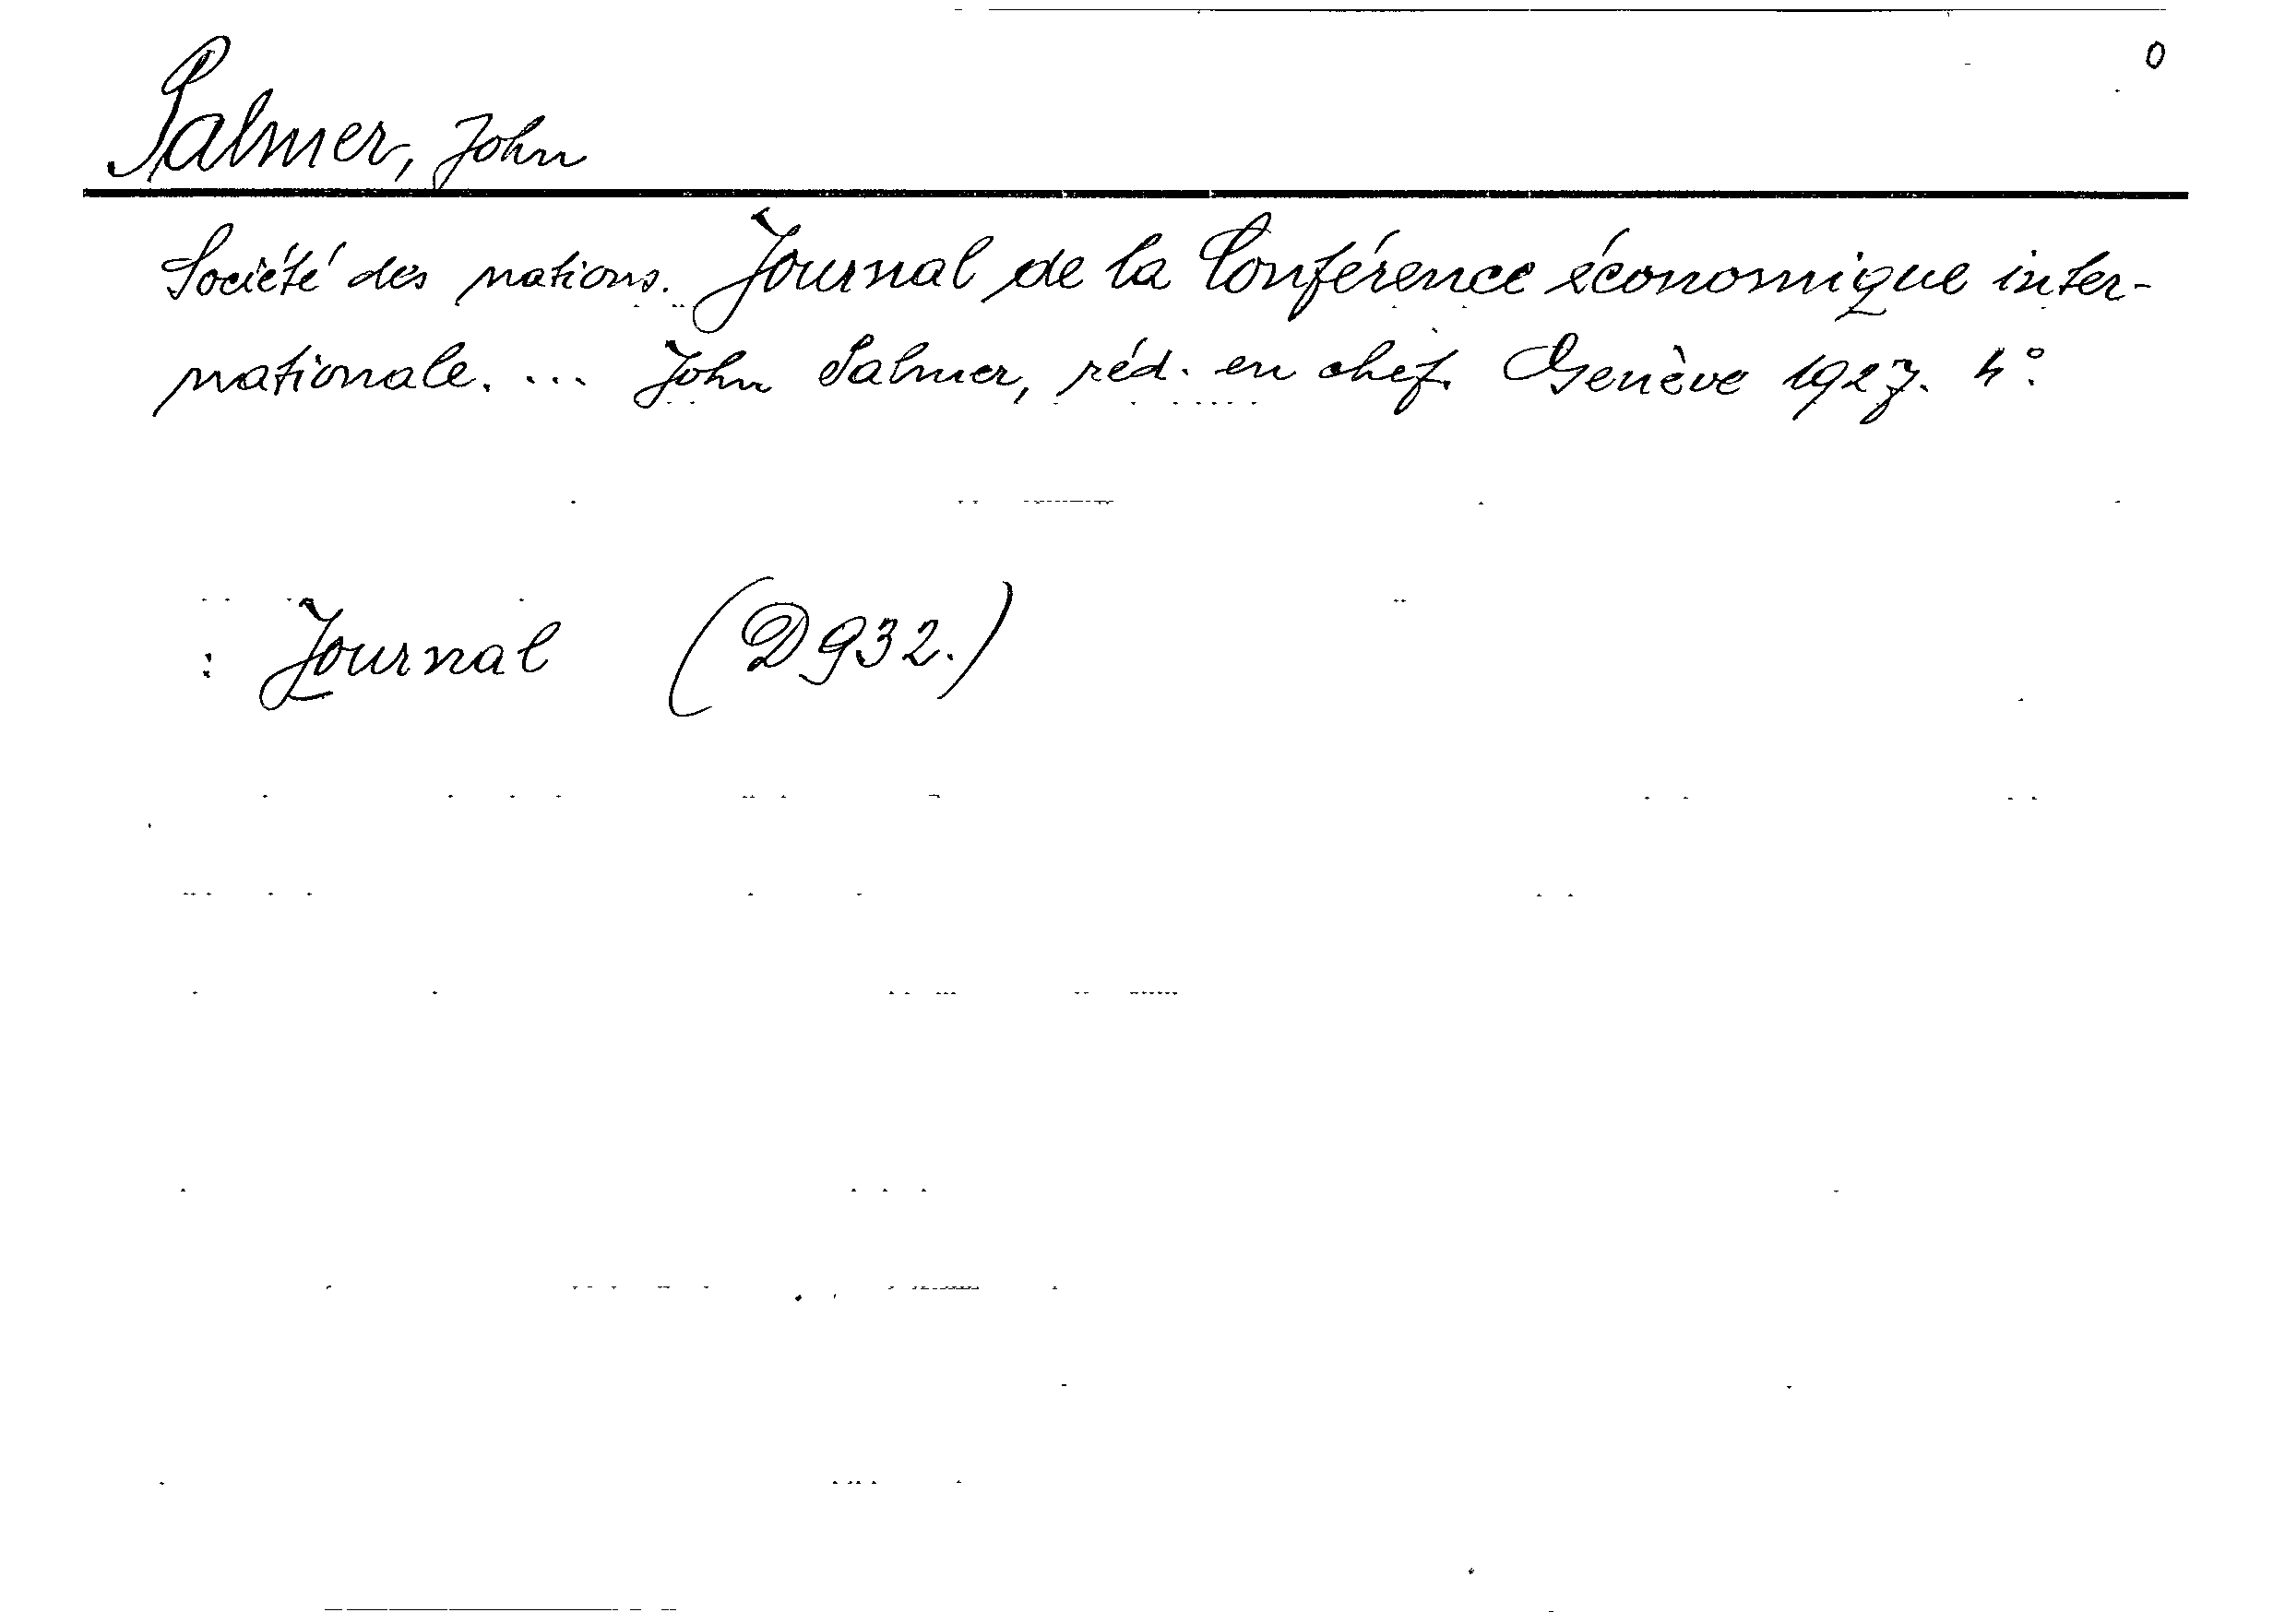 0
Palmer, John
Société des nations. Journal de la Conférence économique inter-
nationale. ... John Palmer, réd. en chef. Genève 1927. 4°.
: Journal (D 932.)